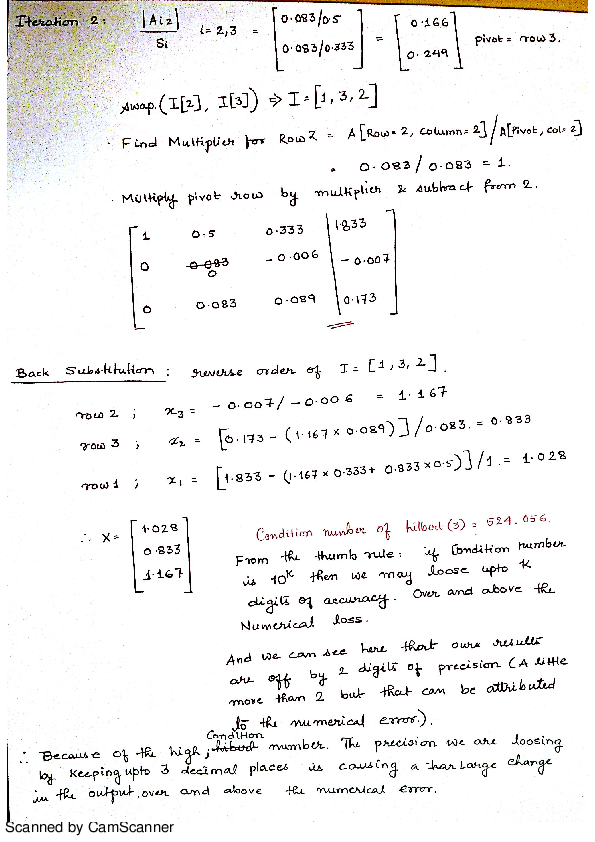 Iteration 2: |Ai2| / Si i=2,3 = [0.083/0.5 0.083/0.333] = [0.166 0.249] pivot = row 3.
swap (I[2], I[3]) ⇒ I = [1, 3, 2]
· Find Multiplier for Row 2 = A[Row=2, column=2] / A[Pivot, col=2]
= 0.083 / 0.083 = 1.
· Multiply pivot row by multiplier & subtract from 2.
1 0.5 0.333 1.833
0 0.083 0 -0.006 -0.007
0 0.083 0.089 0.173
Back Substitution: reverse order of I = [1, 3, 2].
row 2 ; x3 = -0.007 / -0.006 = 1.167
row 3 ; x2 = [0.173 - (1.167 × 0.089)] / 0.083. = 0.833
row 1 ; x1 = [1.833 - (1.167 × 0.333 + 0.833 × 0.5)] / 1. = 1.028
∴ X = [1.028 0.833 1.167]
Condition number of hilbert(3) = 524.056.
From the thumb rule: if Condition number
is 10^k then we may loose upto k
digits of accuracy. Over and above the
Numerical loss.
And we can see here that ours results
are off by 2 digits of precision (A little
more than 2 but that can be attributed
to the numerical error.).
∴ Because of the high condition number. The precision we are loosing
by keeping upto 3 decimal places is causing a large change
in the output, over and above the numerical error.
Scanned by CamScanner